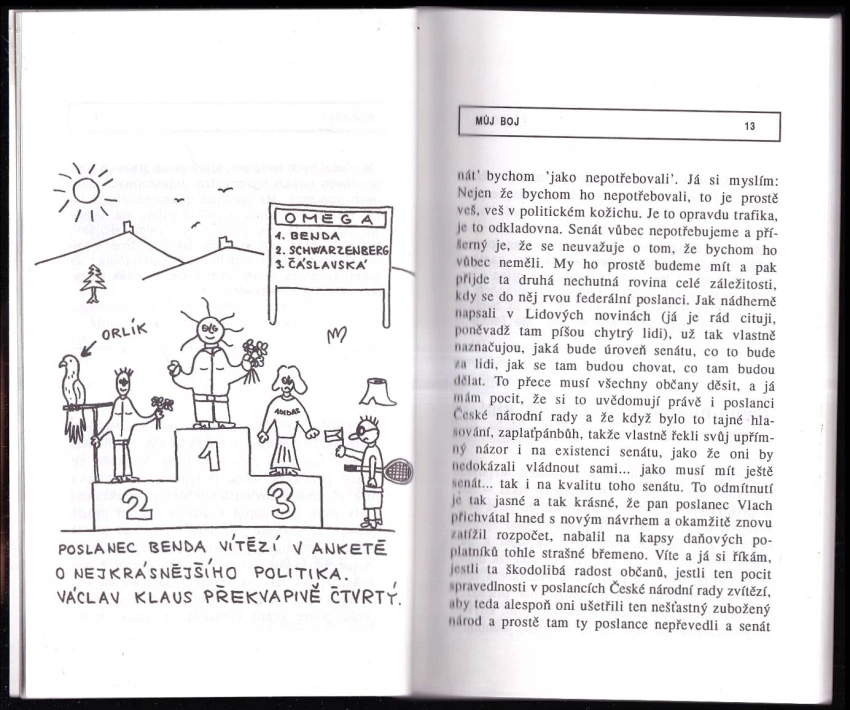 OMEGA
1. BENDA
2. SCHWARZENBERG
3. ČÁSLAVSKÁ
ORLÍK
ADIDAS
1
2
3
POSLANEC BENDA VÍTĚZÍ V ANKETĚ
O NEJKRÁSNĚJŠÍHO POLITIKA.
VÁCLAV KLAUS PŘEKVAPIVĚ ČTVRTÝ.
MŮJ BOJ 13
nát' bychom 'jako nepotřebovali'. Já si myslím:
Nejen že bychom ho nepotřebovali, to je prostě
veš, veš v politickém kožichu. Je to opravdu trafika,
je to odkladovna. Senát vůbec nepotřebujeme a pří-
šerný je, že se neuvažuje o tom, že bychom ho
vůbec neměli. My ho prostě budeme mít a pak
přijde ta druhá nechutná rovina celé záležitosti,
kdy se do něj rvou federální poslanci. Jak nádherně
napsali v Lidových novinách (já je rád cituji,
poněvadž tam píšou chytrý lidi), už tak vlastně
naznačujou, jaká bude úroveň senátu, co to bude
za lidi, jak se tam budou chovat, co tam budou
dělat. To přece musí všechny občany děsit, a já
mám pocit, že si to uvědomují právě i poslanci
České národní rady a že když bylo to tajné hla-
sování, zaplaťpánbůh, takže vlastně řekli svůj upřím-
ný názor i na existenci senátu, jako že oni by
nedokázali vládnout sami... jako musí mít ještě
senát... tak i na kvalitu toho senátu. To odmítnutí
je tak jasné a tak krásné, že pan poslanec Vlach
přichvátal hned s novým návrhem a okamžitě znovu
zatížil rozpočet, nabalil na kapsy daňových po-
platníků tohle strašné břemeno. Víte a já si říkám,
jestli ta škodolibá radost občanů, jestli ten pocit
spravedlnosti v poslancích České národní rady zvítězí,
aby teda alespoň oni ušetřili ten nešťastný zubožený
národ a prostě tam ty poslance nepřevedli a senát